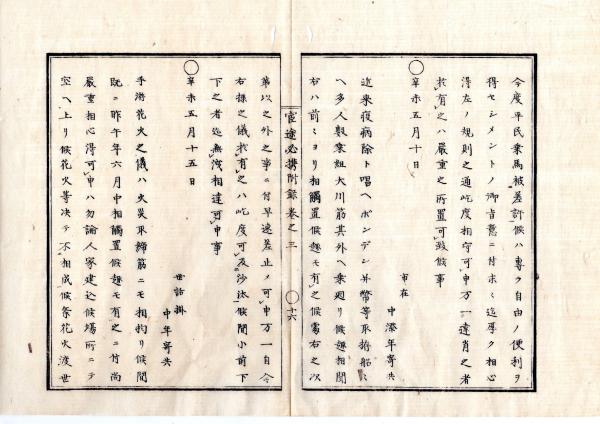 今度平民乗馬被差許候ハ専ラ自由ノ便利ヲ
得セシメントノ御旨意ニ付末々迄厚ク相心
得左ノ規則之通屹度相守可申万一違背之者
於有之ハ厳重之所置可致候事
○
辛未五月十日
市在
中添年寄共
近来疫病除ト唱ヘボンデン幷幣等取拵船ニ
ヘ多人数乗組大川筋其外ヘ乗廻リ候趣相聞
右ハ前々ヨリ相觸置候趣モ有之候處右之次
官途必携附録巻之三
○十六
第以之外之事ニ付早速差止メ可申万一自今
右様之儀於有之ハ屹度可及沙汰候間小前下
下之者迄無洩相達可申事
○
辛未五月十五日
世話掛
中年寄共
手遊花火之儀ハ火災取締筋ニモ相拘リ候間
既ニ昨午年六月中相觸置候趣モ有之ニ付尚
嚴重相心得可申ハ勿論人家建込候場所ニテ
空ヘ上リ候花火等決テ不相成候条花火渡世